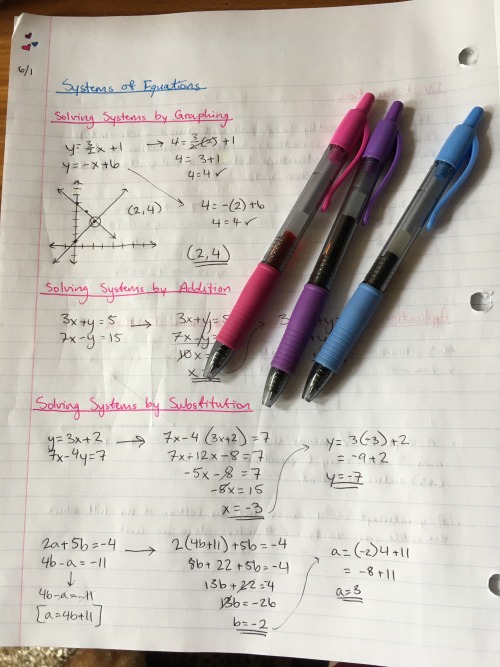 6/1
Systems of Equations
Solving Systems by Graphing
y = 3/2x + 1 → 4 = 3/2(2) + 1
y = -x + 6 4 = 3 + 1
4 = 4 ✓
(2,4) 4 = -(2) + 6
4 = 4 ✓
(2,4)
Solving Systems by Addition
3x + y = 5 → 3x + y = 5 3
7x - y = 15 7x - y =
10x =
x =
Solving Systems by Substitution
y = 3x + 2 → 7x - 4(3x+2) = 7 y = 3(-3) + 2
7x - 4y = 7 7x - 12x - 8 = 7 = -9 + 2
-5x - 8 = 7 y = -7
-5x = 15
x = -3
2a + 5b = -4 → 2(4b+11) + 5b = -4 a = (-2)4 + 11
4b - a = -11 8b + 22 + 5b = -4 = -8 + 11
4b - a = -11 13b + 22 = 4 a = 3
[a = 4b + 11] 13b = -26
b = -2